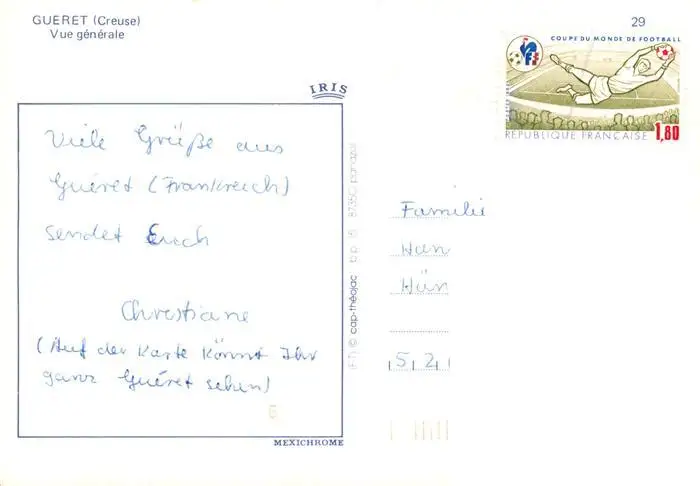 GUERET (Creuse)
Vue générale
29
COUPE DU MONDE DE FOOTBALL
REPUBLIQUE FRANÇAISE 1,80
IRIS
Viele Grüße aus
Guéret (Frankreich)
sendet Euch
Christiane
(Auf der Karte könnt Ihr
ganz Guéret sehen)
MEXICHROME
cap-théojac
Familie
Han
Hün
5 2